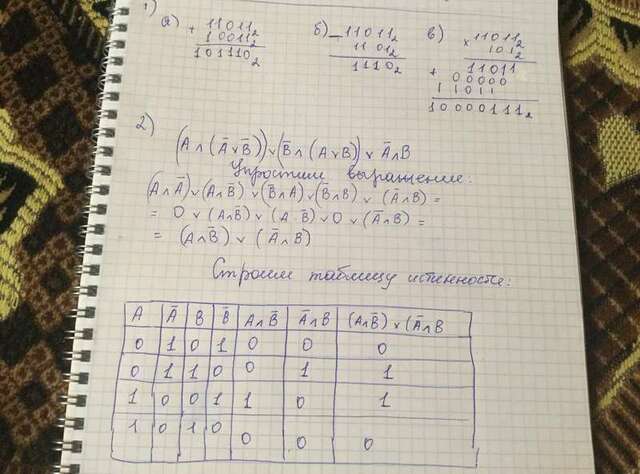 1)
а) + 11011₂
10011₂
101110₂
б) − 11011₂
1101₂
1110₂
в) × 11011₂
101₂
+ 11011
00000
11011
10000111₂
2)
(A ∧ (Ā ∨ B̄)) ∨ (B̄ ∧ (A ∨ B)) ∨ Ā ∧ B
Упростим выражение:
(A ∧ Ā) ∨ (A ∧ B̄) ∨ (B̄ ∧ A) ∨ (B̄ ∧ B) ∨ (Ā ∧ B) =
= 0 ∨ (A ∧ B̄) ∨ (A B̄) ∨ 0 ∨ (Ā ∧ B) =
= (A ∧ B̄) ∨ (Ā ∧ B)
Строим таблицу истинности:
A Ā B B̄ A ∧ B̄ Ā ∧ B (A ∧ B̄) ∨ (Ā ∧ B
0 1 0 1 0 0 0
0 1 1 0 0 1 1
1 0 0 1 1 0 1
1 0 1 0 0 0 0